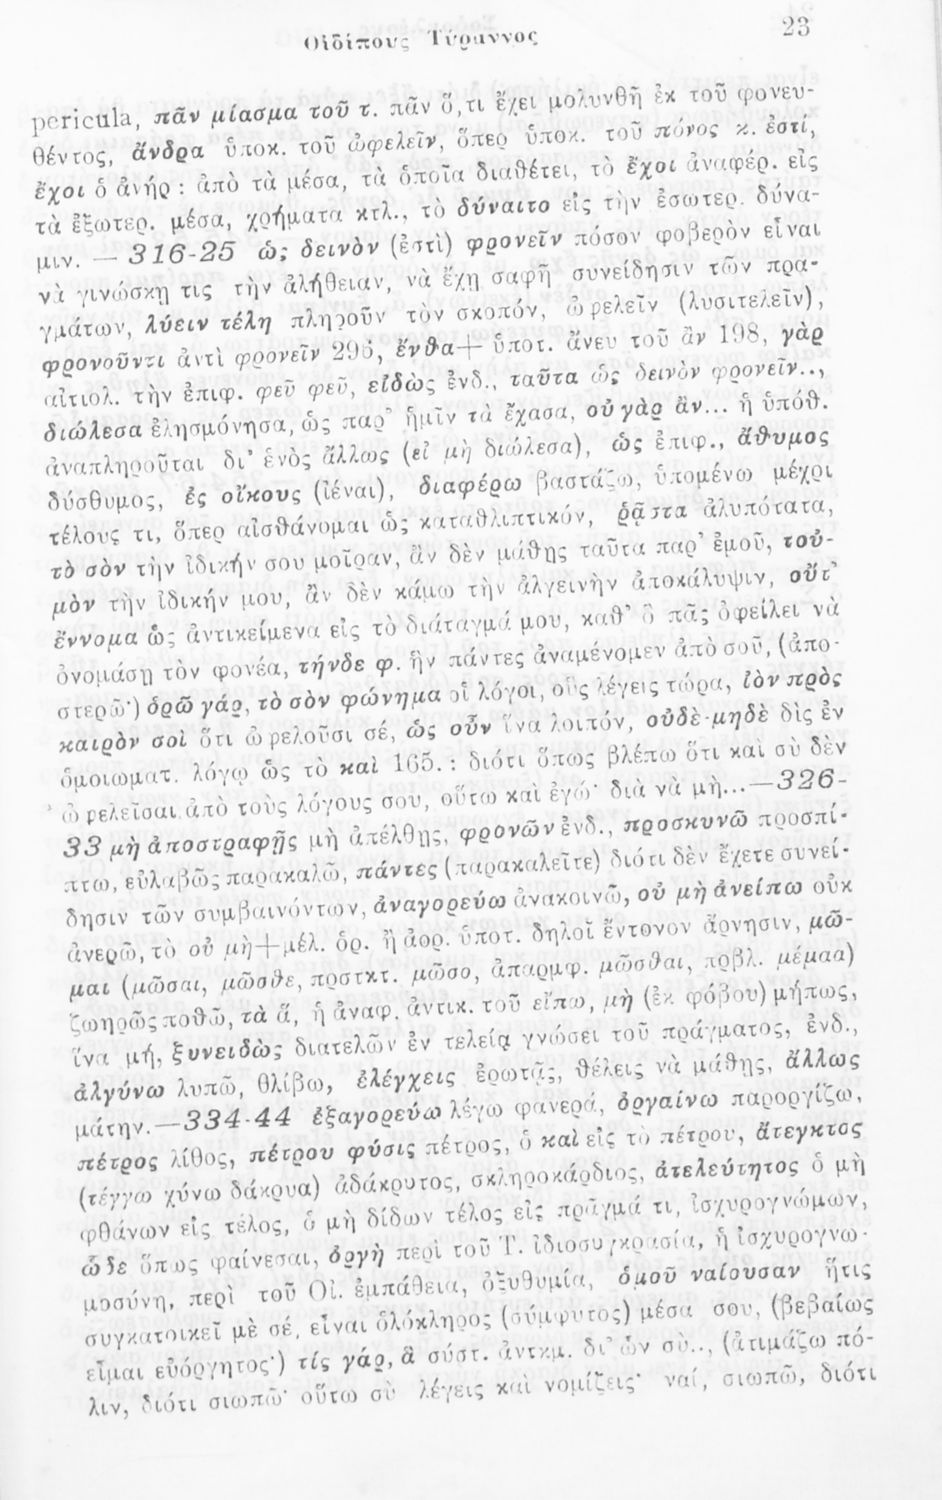 Οἰδίπους Τύραννος 23
pericula, πᾶν μίασμα τοῦ τ. πᾶν ὅ,τι ἔχει μολυνθῆ ἐκ τοῦ φονευ-
θέντος, ἄνδρα ὑποκ. τοῦ ὠφελεῖν, ὅπερ ὑποκ. τοῦ πόνος κ. ἐστί,
ἔχοι ὁ ἀνήρ : ἀπὸ τὰ μέσα, τὰ ὁποῖα διαθέτει, τὸ ἔχοι ἀναφέρ. εἰς
τὰ ἐξωτερ. μέσα, χρήματα κτλ., τὸ δύναιτο εἰς τὴν ἐσωτερ. δύνα-
μιν. — 316-25 ὡς δεινὸν (ἐστὶ) φρονεῖν πόσον φοβερὸν εἶναι
νὰ γινώσκῃ τις τὴν ἀλήθειαν, νὰ ἔχῃ σαφῆ συνείδησιν τῶν πρα-
γμάτων, λύειν τέλη πληροῦν τὸν σκοπόν, ὠφελεῖν (λυσιτελεῖν),
φρονοῦντι ἀντὶ φρονεῖν 296, ἔνθα+ ὑποτ. ἄνευ τοῦ ἂν 198, γὰρ
αἰτιολ. τὴν ἐπιφ. φεῦ φεῦ, εἰδὼς ἐνδ., ταῦτα ὡς δεινὸν φρονεῖν..,
διώλεσα ἐλησμόνησα, ὡς παρ' ἡμῖν τὰ ἔχασα, οὐ γὰρ ἂν... ἡ ὑπόθ.
ἀναπληροῦται δι' ἑνὸς ἄλλως (εἰ μὴ διώλεσα), ὡς ἐπιφ., ἄθυμος
δύσθυμος, ἐς οἴκους (ἰέναι), διαφέρω βαστάζω, ὑπομένω μέχρι
τέλους τι, ὅπερ αἰσθάνομαι ὡς καταθλιπτικόν, ῥᾷστα ἀλυπότατα,
τὸ σὸν τὴν ἰδικήν σου μοῖραν, ἂν δὲν μάθῃς ταῦτα παρ' ἐμοῦ, τοὐ-
μὸν τὴν ἰδικήν μου, ἂν δὲν κάμω τὴν ἀλγεινὴν ἀποκάλυψιν, οὔτ'
ἔννομα ὡς ἀντικείμενα εἰς τὸ διάταγμά μου, καθ' ὃ πᾶς ὀφείλει νὰ
ὀνομάσῃ τὸν φονέα, τήνδε φ. ἣν πάντες ἀναμένομεν ἀπὸ σοῦ, (ἀπο-
στερῶ·) ὁρῶ γάρ, τὸ σὸν φώνημα οἱ λόγοι, οὓς λέγεις τώρα, ἰὸν πρὸς
καιρὸν σοὶ ὅτι ὠφελοῦσι σέ, ὡς οὖν ἵνα λοιπόν, οὐδὲ-μηδὲ δὶς ἐν
ὁμοιωματ. λόγῳ ὡς τὸ καὶ 165. : διότι ὅπως βλέπω ὅτι καὶ σὺ δὲν
ὠφελεῖσαι ἀπὸ τοὺς λόγους σου, οὕτω καὶ ἐγώ· διὰ νὰ μὴ... —326-
33 μὴ ἀποστραφῇς μὴ ἀπέλθῃς, φρονῶν ἐνδ., προσκυνῶ προσπί-
πτω, εὐλαβῶς παρακαλῶ, πάντες (παρακαλεῖτε) διότι δὲν ἔχετε συνεί-
δησιν τῶν συμβαινόντων, ἀναγορεύω ἀνακοινῶ, οὐ μὴ ἀνείπω οὐκ
ἀνερῶ, τὸ οὐ μὴ+μέλ. ὁρ. ἢ ἀορ. ὑποτ. δηλοῖ ἔντονον ἄρνησιν, μῶ-
μαι (μῶσαι, μῶσθε, προστκτ. μῶσο, ἀπαρμφ. μῶσθαι, πρβλ. μέμαα)
ζωηρῶς ποθῶ, τὰ ἅ, ἡ ἀναφ. ἀντικ. τοῦ εἴπω, μὴ (ἐκ φόβου) μήπως,
ἵνα μή, ξυνειδὼς διατελῶν ἐν τελείᾳ γνώσει τοῦ πράγματος, ἐνδ.,
ἀλγύνω λυπῶ, θλίβω, ἐλέγχεις ἐρωτᾷς, θέλεις νὰ μάθῃς, ἄλλως
μάτην.—334-44 ἐξαγορεύω λέγω φανερά, ὀργαίνω παροργίζω,
πέτρος λίθος, πέτρου φύσις πέτρος, ὁ καὶ εἰς τὸ πέτρου, ἄτεγκτος
(τέγγω χύνω δάκρυα) ἀδάκρυτος, σκληροκάρδιος, ἀτελεύτητος ὁ μὴ
φθάνων εἰς τέλος, ὁ μὴ δίδων τέλος εἰς πρᾶγμά τι, ἰσχυρογνώμων,
ὧδε ὅπως φαίνεσαι, ὀργὴ περὶ τοῦ Τ. ἰδιοσυγκρασία, ἡ ἰσχυρογνω-
μοσύνη, περὶ τοῦ Οἰ. ἐμπάθεια, ὀξυθυμία, ὁμοῦ ναίουσαν ἥτις
συγκατοικεῖ μὲ σέ, εἶναι ὁλόκληρος (σύμφυτος) μέσα σου, (βεβαίως
εἶμαι εὐόργητος·) τίς γάρ, ἃ σύστ. ἀντκμ. δι' ὧν σὺ.., (ἀτιμάζω πό-
λιν, διότι σιωπῶ· οὕτω σὺ λέγεις καὶ νομίζεις· ναί, σιωπῶ, διότι